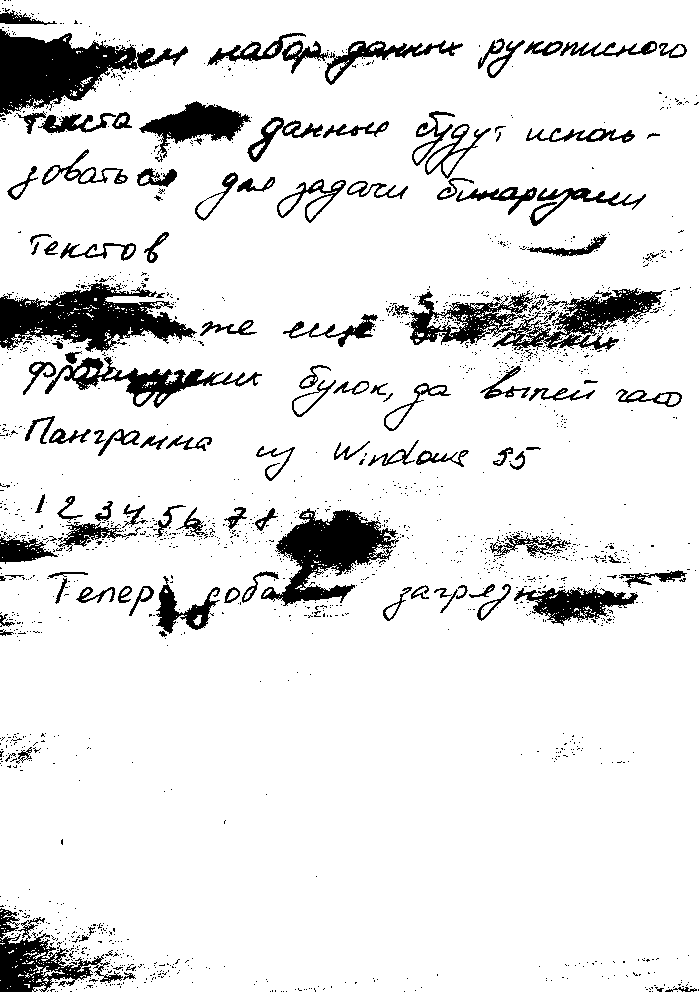 набор данных рукописного
текста данные будут исполь-
зоваться для задачи бинаризации
текстов
же ещё мягких
французских булок, да выпей чаю
Панграмма из Windows 95
1 2 3 4 5 6 7 8 9
Теперь добавим загрязнений